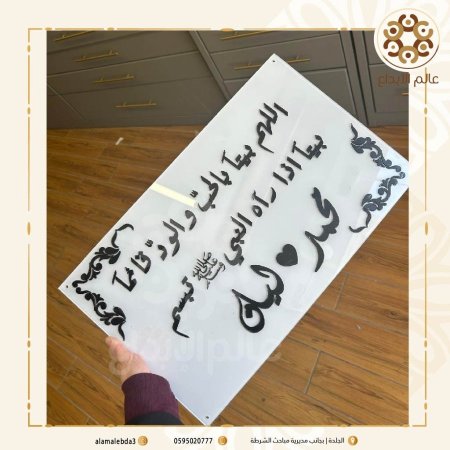 عالم الإبداع
اللهم بيتاً بالحب والود قائماً
بيتاً اذا رآه النبي ﷺ تبسم
محمد ليان
عالم الإبداع
الجلدة | بجانب مديرية مباحث الشرطة
0595020777
alamalebda3